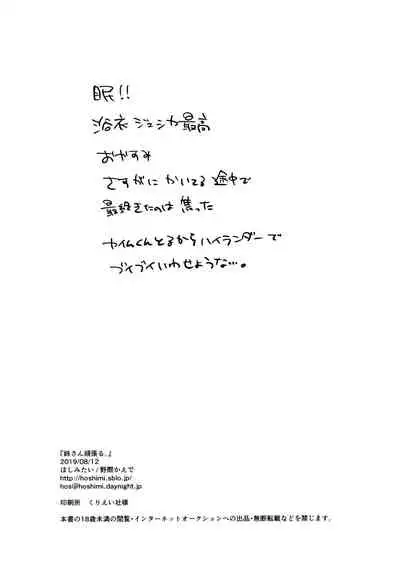 眠!!
浴衣ジェシカ最高
おやすみ
さすがにかいてる途中で
最終きたのは焦った
カイムくんとるからハイランダーで
ブイブイいわせような…。
『姉さん頑張る。』
2019/08/12
ほしみたい/野際かえで
http://hoshimi.sblo.jp/
hosi@hoshimi.daynight.jp
印刷所 くりえい社様
本書の18歳未満の閲覧・インターネットオークションへの出品・無断転載などを禁じます。